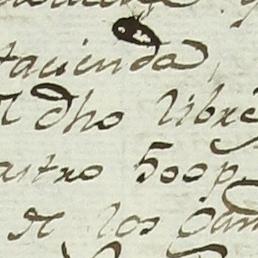 hacienda,
dho libre
astro 500p
de los Gan